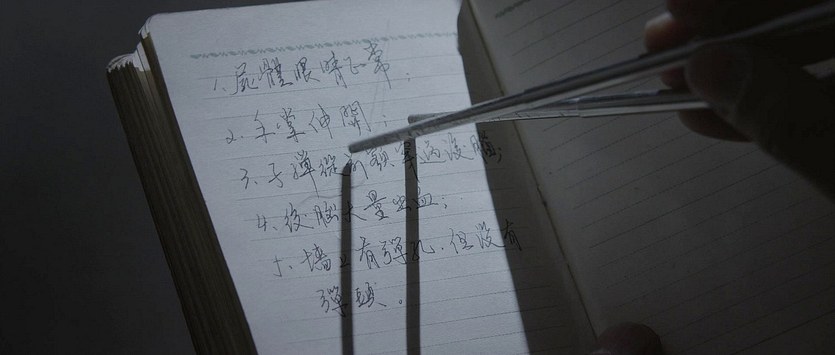 1、屍體眼睛正常；
2、手掌伸開；
3、子彈從前額穿過後腦；
4、後腦大量出血；
5、墙上有彈孔，但没有
彈頭。